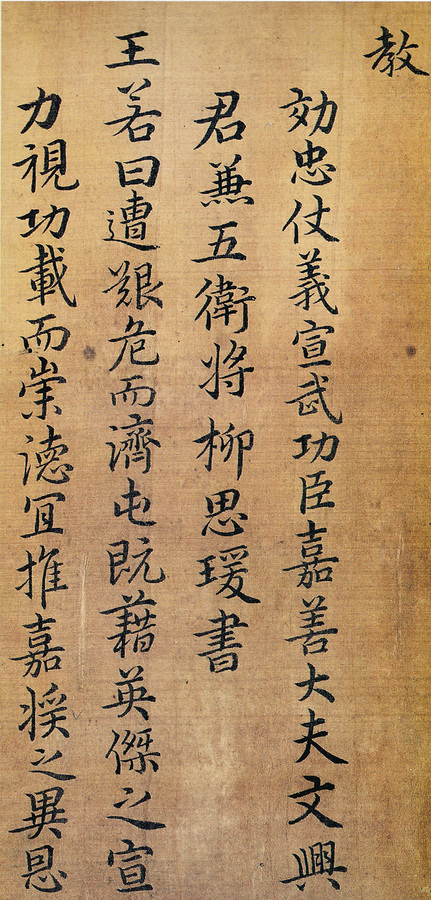 教
効忠仗義宣武功臣嘉善大夫文興
君兼五衛将柳思瑗書
王若曰遭艱危而濟屯既藉英傑之宣
力視功載而崇徳宜推嘉奨之異恩